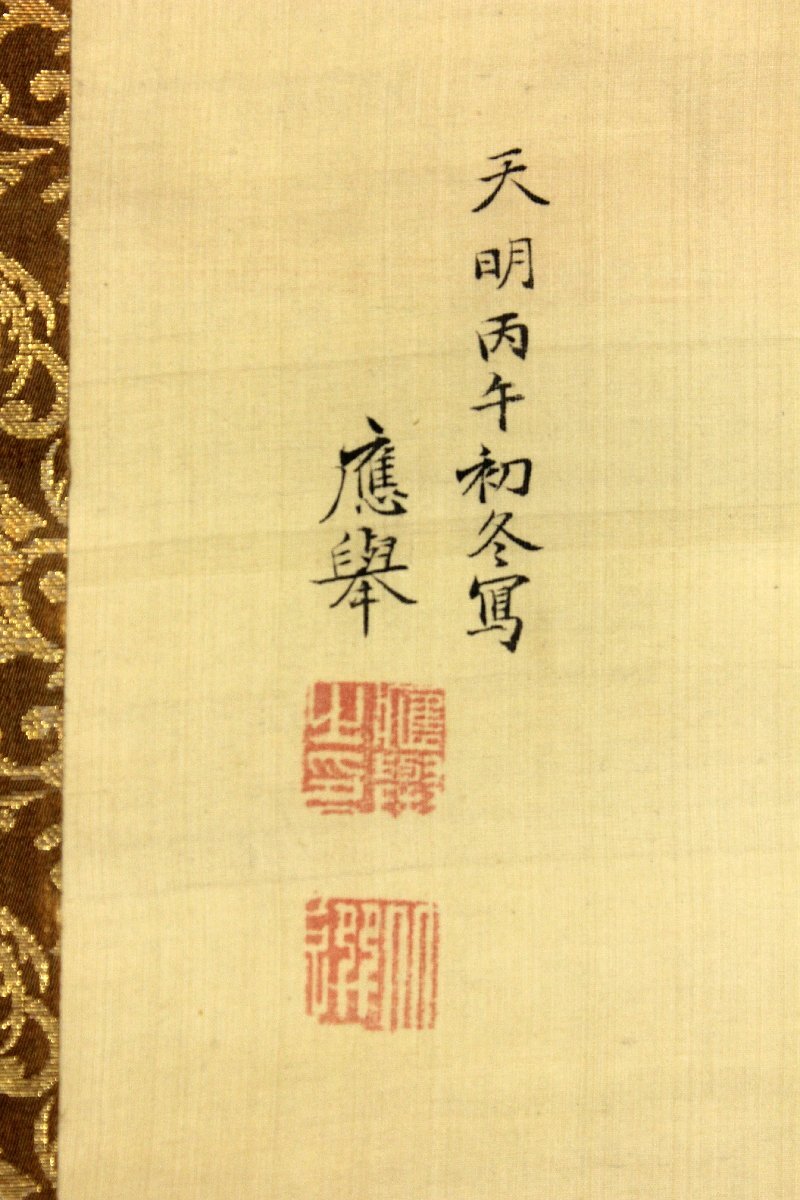 天明丙午初冬寫
應舉
應舉之印
仲選